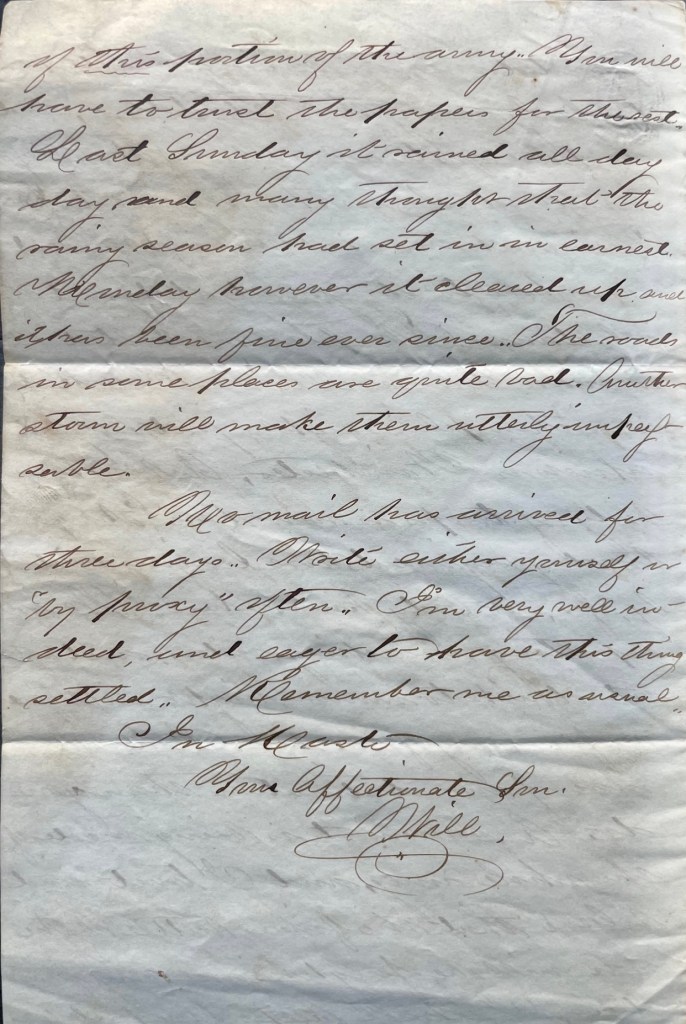 of this portion of the army.. You will
have to trust the papers for the rest.
Last Sunday it rained all day
day and many thought that the
rainy season had set in in earnest.
Monday however it cleared up and
it has been fine ever since.. The roads
in some places are quite bad. Another
storm will make them utterly impas-
sable.
No mail has arrived for
three days.. Write either yourself or
"by proxy" often.. I'm very well in-
deed, and eager to have this thing
settled.. Remember me as usual..
In Haste
Your Affectionate Son.
Will.